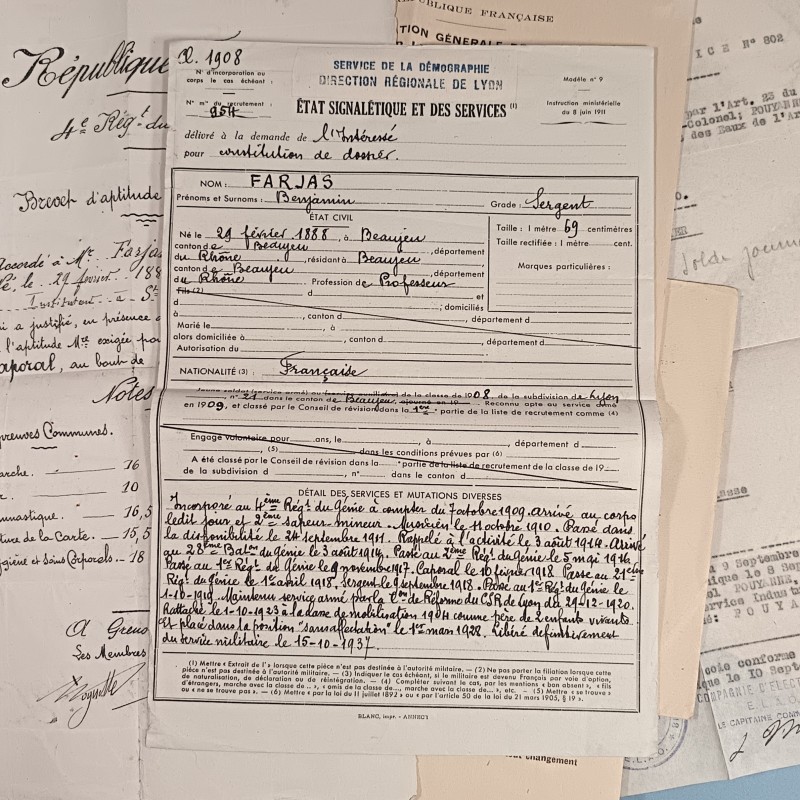 République
4e Régt du
Brevet d'aptitude
Accordé à Mr Farjas
Né le 29 février 188
Instituteur à St
a justifié, en présence
l'aptitude exigée po
Caporal, au bout de
Notes
Epreuves Communes.
arche. — 16
10
mnastique. — 16,5
ture de la Carte. — 15,5
ygiène et Soins Corporels. — 18
A Greno
Les Membres
PUBLIQUE FRANÇAISE
TION GÉNÉRALE
ICE N° 802
par l'Art. 23 du
-Colonel; POUYANNE
des Eaux de l'A
Solde journa
R. 1908
N° d'incorporation au
corps le cas échéant :
N° mle du recrutement :
954
SERVICE DE LA DÉMOGRAPHIE
DIRECTION RÉGIONALE DE LYON
ÉTAT SIGNALÉTIQUE ET DES SERVICES (1)
Modèle n° 9
Instruction ministérielle
du 8 juin 1911
délivré à la demande de l'Intéressé
pour constitution de dossier.
NOM : FARJAS
Prénoms et Surnoms : Benjamin
Grade : Sergent
ÉTAT CIVIL
Né le 29 février 1888, à Beaujeu
canton de Beaujeu, département
du Rhône, résidant à Beaujeu
canton de Beaujeu, département
du Rhône Profession de Professeur
Taille : 1 mètre 69 centimètres
Taille rectifiée : 1 mètre cent.
Marques particulières :
fils (2) d et
d ; domiciliés
à , canton d , département d
Marié le à
alors domiciliée à , canton d , département d
Autorisation du
NATIONALITÉ (3) : Française
Jeune soldat (service armé) ou (service auxiliaire) de la classe de 1908, de la subdivision de Lyon
, n° 21 dans le canton de Beaujeu, ajourné en 19 Reconnu apte au service armé
en 1909, et classé par le Conseil de révision dans la 1ère partie de la liste de recrutement comme (4)
Engagé volontaire pour ans, le , à , département d
, (5) dans les conditions prévues par (6)
A été classé par le Conseil de révision dans la e partie de la liste de recrutement de la classe de 19
de la subdivision d , n° dans le canton d
DÉTAIL DES SERVICES ET MUTATIONS DIVERSES
Incorporé au 4ème Régt du Génie à compter du 7 octobre 1909. Arrivé au corps
ledit jour et 2ème sapeur-mineur. Musicien le 11 octobre 1910. Passé dans
la disponibilité le 24 septembre 1911. Rappelé à l'activité le 3 août 1914. Arrivé
au 28ème Batlon du Génie le 3 août 1914. Passé au 2ème Régt du Génie le 5 mai 1916.
Passé au 1er Régt de Génie le 9 novembre 1917. Caporal le 10 février 1918 Passé au 21ème
Régt du Génie le 1er avril 1918. Sergent le 9 septembre 1918. Passé au 1er Régt du Génie le
1-10-1919. Maintenu service armé par la Con de Réforme du CSR de Lyon du 29-12-1920.
Rattaché le 1-10-1923 à la classe de mobilisation 1904 comme père de 2 enfants vivants.
Est placé dans la position "sans affectation" le 1er mars 1928. Libéré définitivement
du service militaire le 15-10-1937.
(1) Mettre « Extrait de l' » lorsque cette pièce n'est pas destinée à l'autorité militaire. — (2) Ne pas porter la filiation lorsque cette
pièce n'est pas destinée à l'autorité militaire. — (3) Indiquer le cas échéant, si le militaire est devenu Français par voie d'option,
de naturalisation, de déclaration ou de réintégration. — (4) Compléter suivant le cas, par les mentions « bon absent », « fils
d'étrangers, marche avec la classe de... », « omis de la classe de..., marche avec la classe de... », etc. — (5) Mettre « se trouve »
ou « ne se trouve pas ». — (6) Mettre « par la loi du 11 juillet 1892 » ou « par l'article 50 de la loi du 21 mars 1905, § 19 ».
BLANC, impr. - ANNECY
asse
9 Septem
ique le 8 Sep
POUYANNE,
ervices Indust
POUYA
opie conforme
ique le 10 Sept
COMPAGNIE D'ÉLECT
LE CAPITAINE COMM
changement